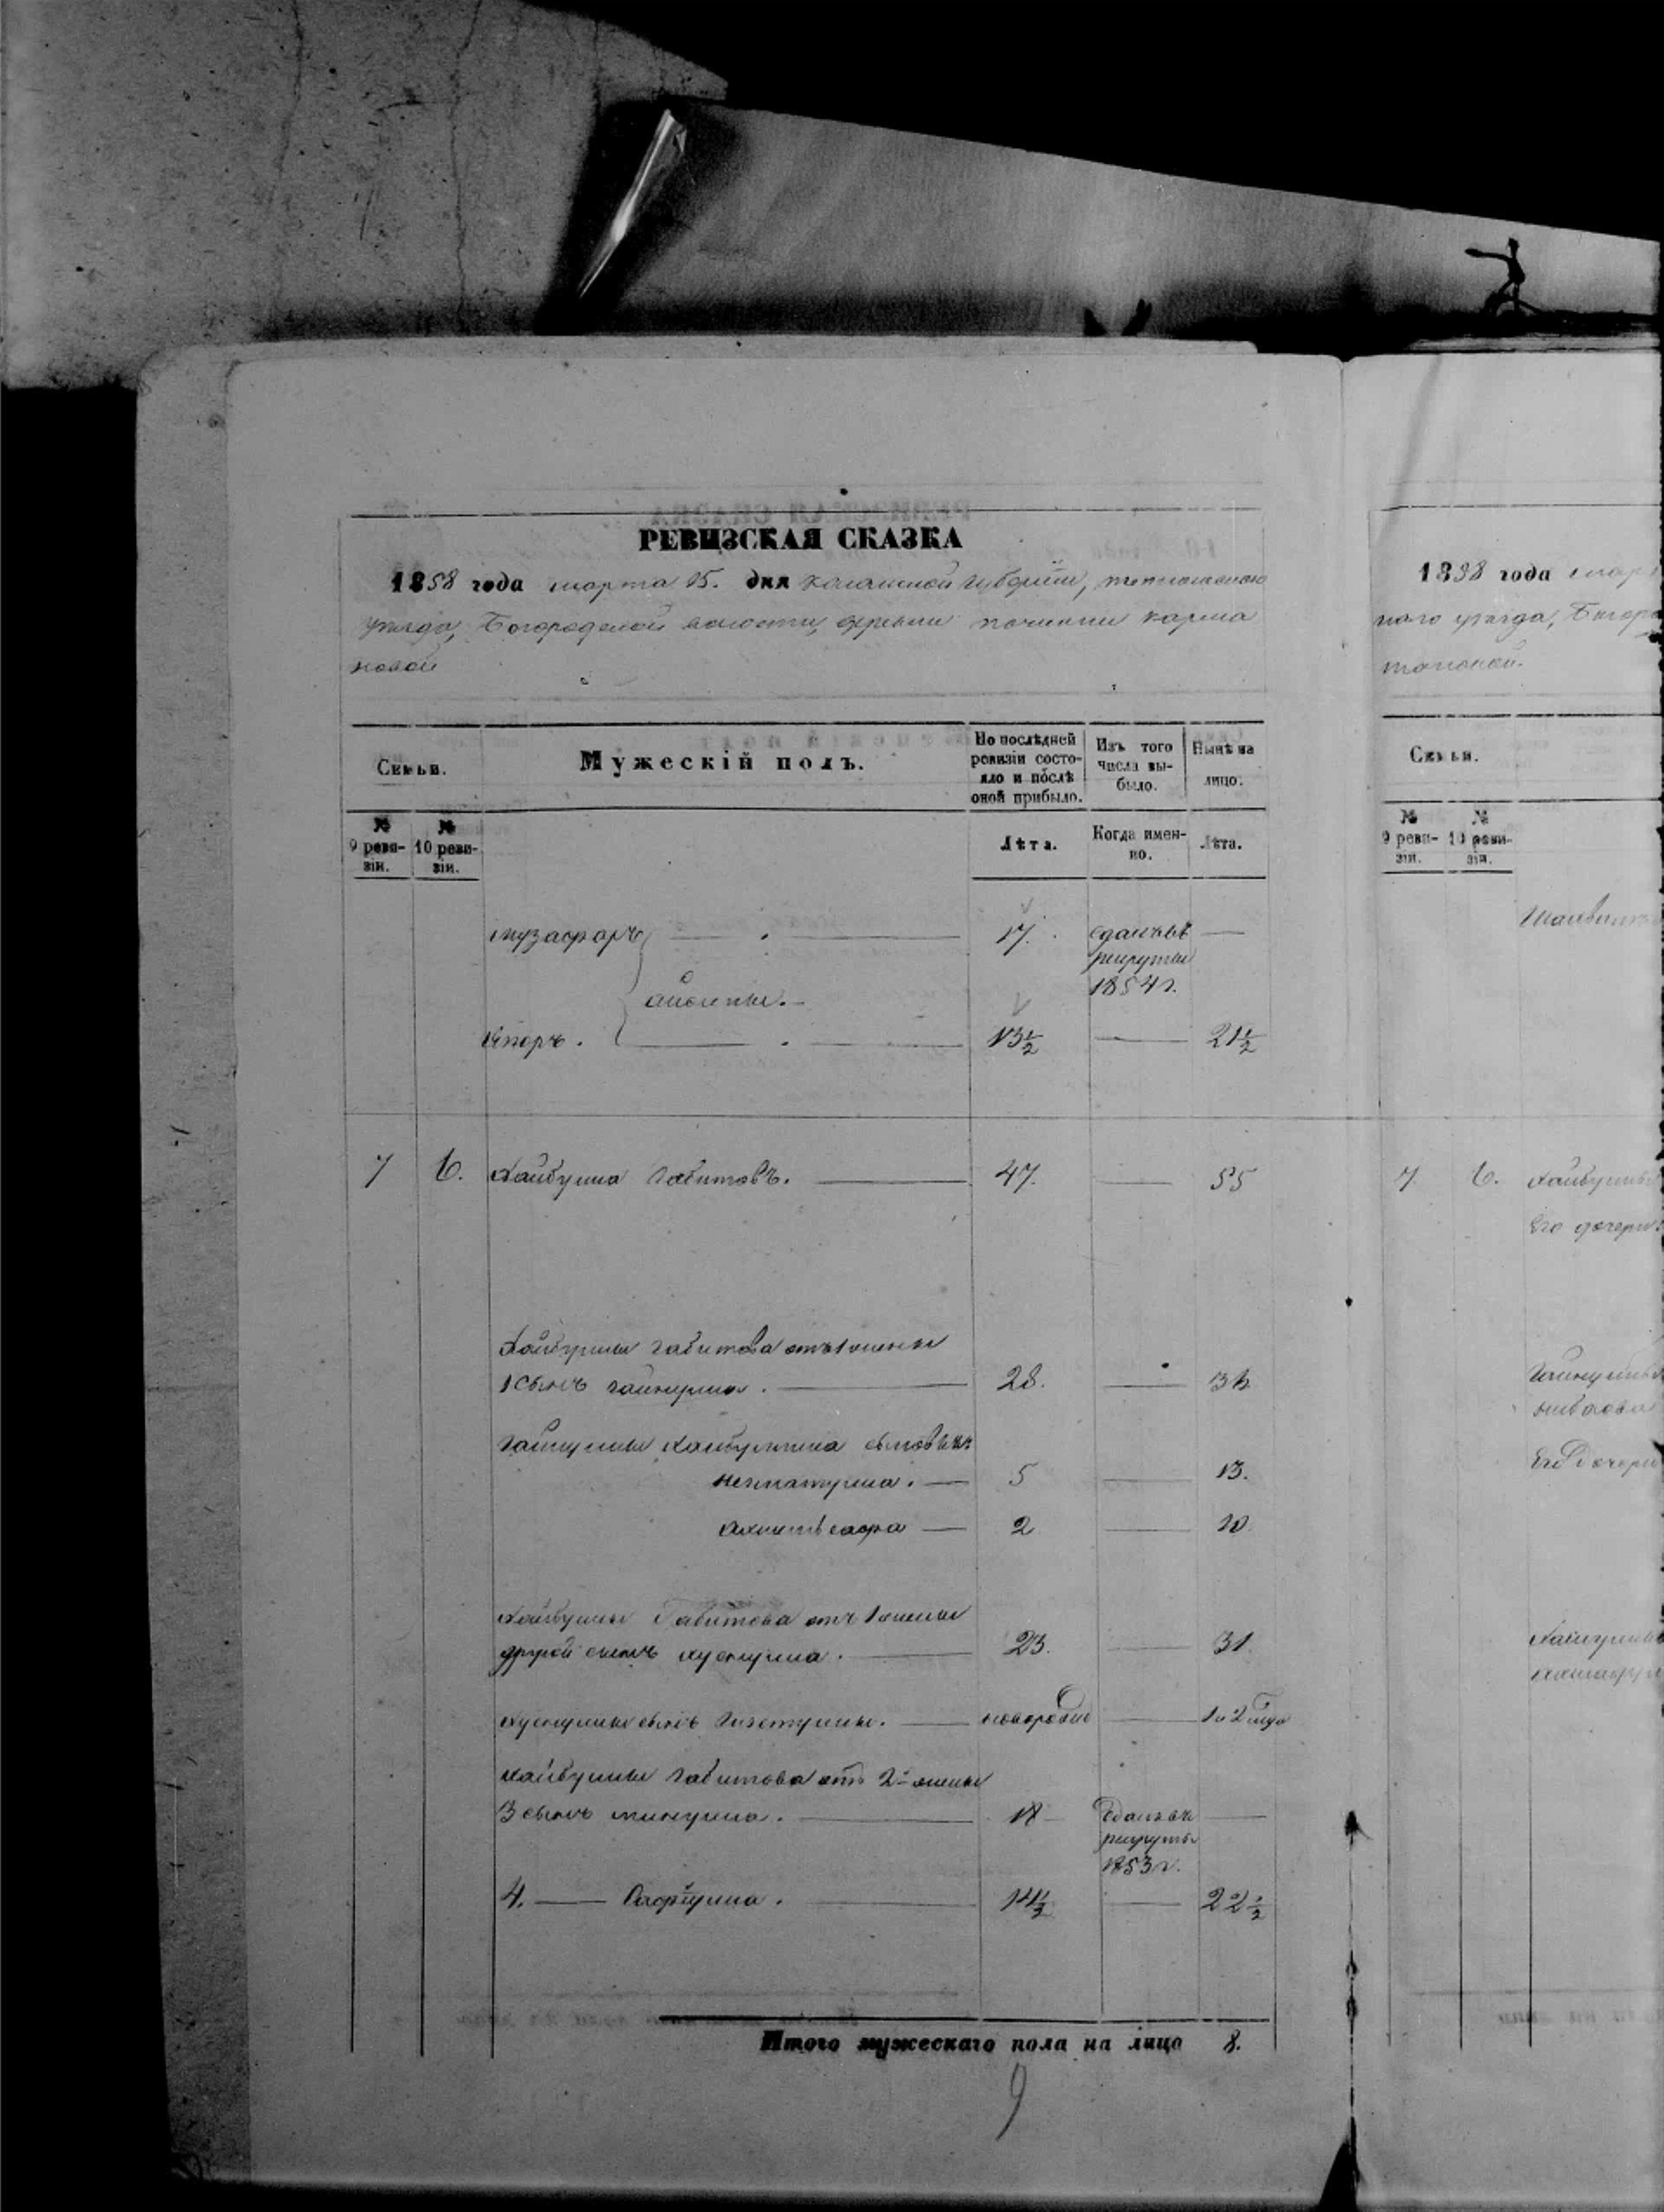 РЕВИЗСКАЯ СКАЗКА
1858 года марта 15. дня казанской губернiи,
уезда, Богородской волости, деревни починки карма
новой
Семьи.
Мужескiй полъ.
По послѣдней ревизiи состояло и послѣ оной прибыло.
Изъ того числа выбыло.
Нынѣ на лицо.
№ 9 ревизiи.
№ 10 ревизiи.
Лѣта.
Когда именно.
Лѣта.
музафаръ 17. сданъ въ
рекруты
1854 г.
13½ 21½
7 6. Хайбулла Габитовъ. 47. 55
Хайбуллы Габитова отъ 1 жены
1 сынъ гайнулла. 28. 36
гайнуллы хайбуллина сыновья
нигматулла. 5 13.
ахметсафа 2 10.
Хайбуллы Габитова отъ 1 жены
другой сынъ хуснулла. 23. 31.
хуснуллы сынъ новорож 1 и 2
хайбуллы Габитова отъ 2й жены
3 сынъ минулла. 18 Сданъ въ
рекруты
1853 г.
4. 14½ 22½
Итого мужескаго пола на лицо 8.
9
1858 года мар
наго уезда, Богоро
мановой.
Семьи.
№ 9 ревизiи.
№ 10 ревизiи.
7. 6. Хайбуллы
Его дочери
Гайнуллы
Его дочери